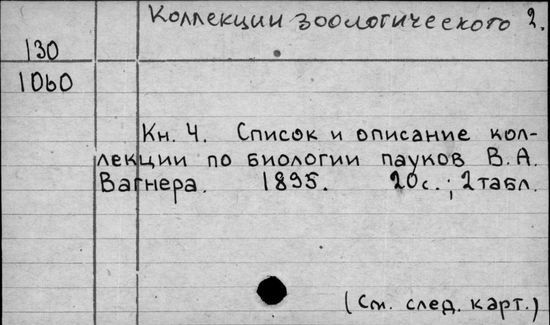 Коллекции зоологического 2.
130
1060
Кн. 4. Список и описание кол-
лекции по биологии пауков В.А.
Вагнера. 1895. 20с.; 2табл.
(См. след. карт.)